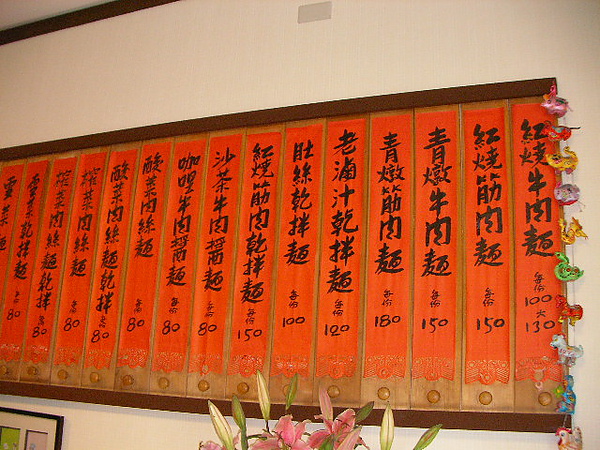 紅燒牛肉麵 每份 100 大 130
紅燒筋肉麵 每份 150
青燉牛肉麵 每份 150
青燉筋肉麵 每份 180
老滷汁乾拌麵 每份 120
肚絲乾拌麵 每份 100
紅燒筋肉乾拌麵 每份 150
沙茶牛肉醬麵 每份 80
咖哩牛肉醬麵 每份 80
酸菜肉絲麵 每份 80
酸菜肉絲麵乾拌 每份 80
榨菜肉絲麵 每份 80
榨菜肉絲麵乾拌 每份 80
菜乾拌麵 每份 80
菜 麵